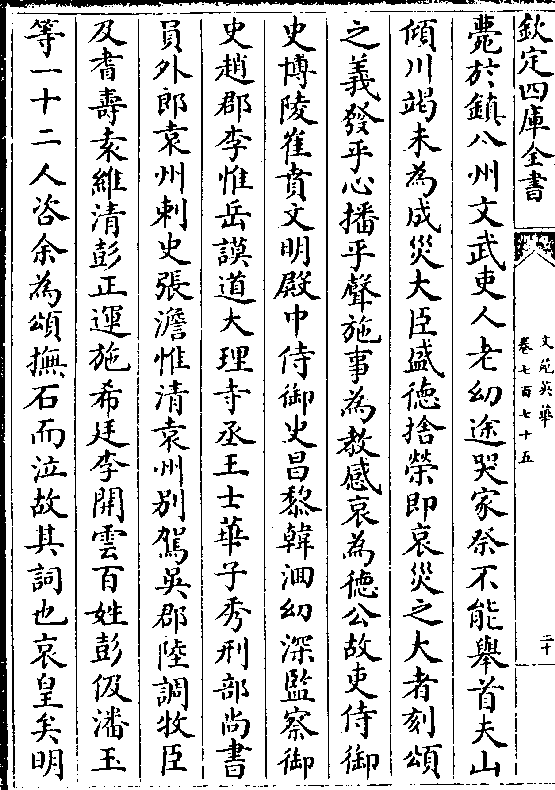 欽定四庫全書
文苑英華
卷七百七十五
二十
薨於鎮八州文武吏人老幼途哭家祭不能舉首夫山
傾川竭未為成災大臣盛德捨榮即哀災之大者刻頌
之義發乎心播乎聲施事為教感哀為德公故吏侍御
史博陵崔賁文明殿中侍御史昌黎韓洄幼深監察御
史趙郡李惟岳謨道大理寺丞王士華子秀刑部尚書
員外郎袁州刺史張澹惟清袁州別駕吳郡陸調牧臣
及耆壽袁維清彭正運施希廷李開雲百姓彭伋潘玉
等一十二人咨余為頌撫石而泣故其詞也哀皇矣明